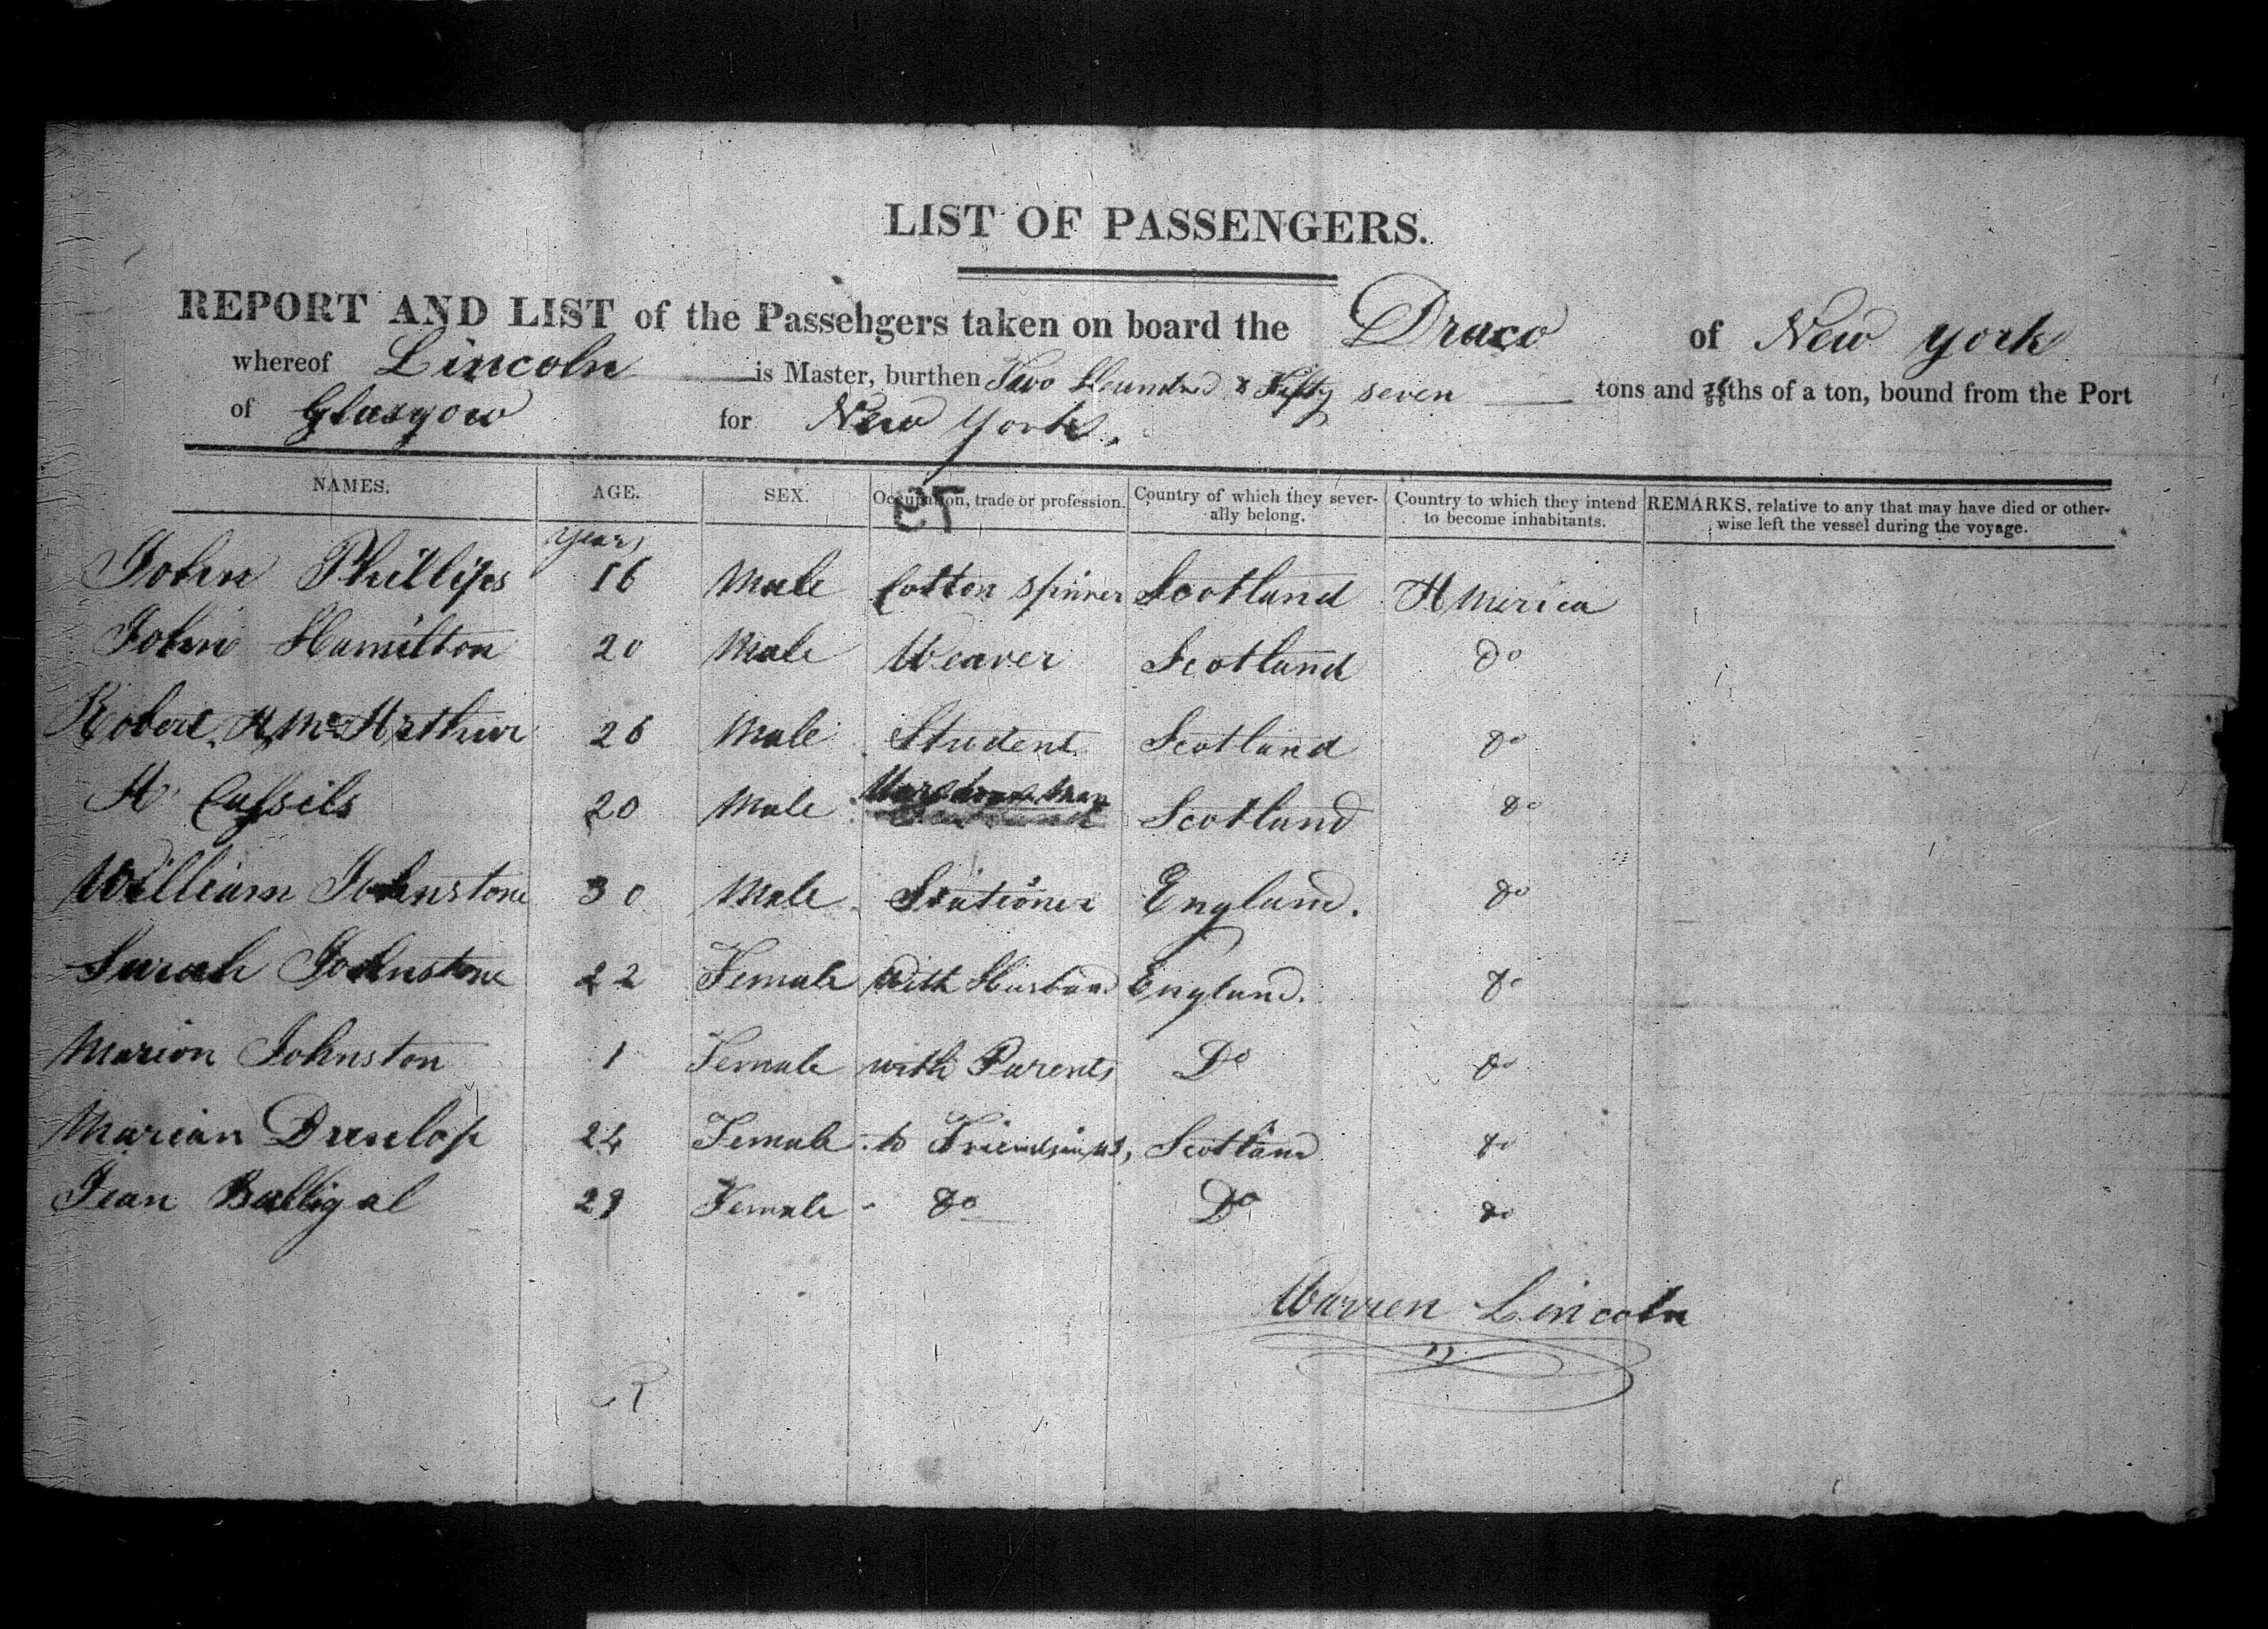 LIST OF PASSENGERS.
REPORT AND LIST of the Passengers taken on board the Draco of New York
whereof Lincoln is Master, burthen Two Hundred & Fifty seven tons and ths of a ton, bound from the Port
of Glasgow for New York.
NAMES. AGE. SEX. Occupation, trade or profession. Country of which they severally belong. Country to which they intend to become inhabitants. REMARKS, relative to any that may have died or otherwise left the vessel during the voyage.
years
John Phillips 16 Male Cotton Spinner Scotland America
John Hamilton 20 Male Weaver Scotland do
Robert A McArthur 26 Male Student Scotland do
A Cassils 20 Male Warehouseman Scotland do
William Johnstone 30 Male Stationer England. do
Sarah Johnstone 22 Female with Husband England. do
Marion Johnston 1 Female with Parents Do do
Marian Dunlop 24 Female to Friends in US, Scotland do
Jean Balligal 29 Female - do Do do
Warren Lincoln